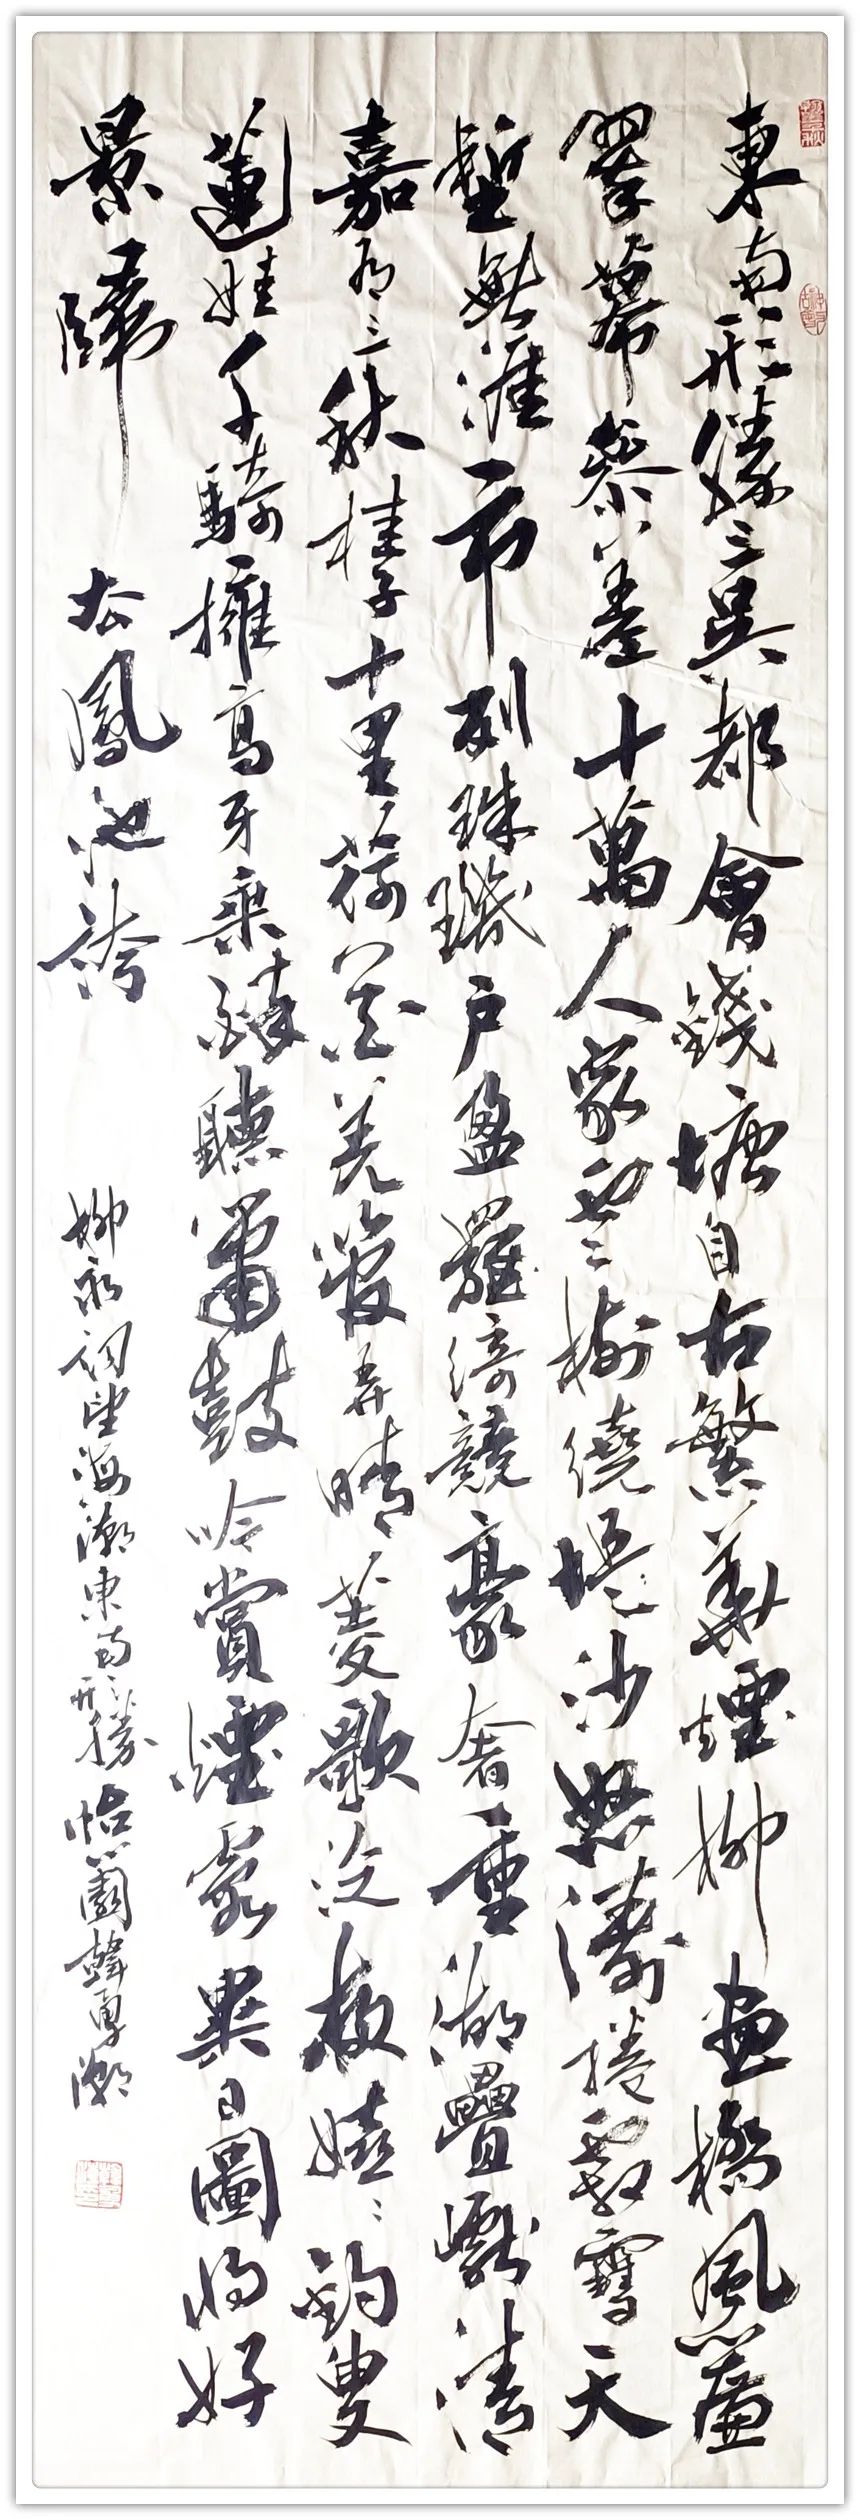 東南形勝三吳都會錢塘自古繁華煙柳畫橋風簾
翠幕參差十萬人家雲樹繞堤沙怒濤捲霜雪天
塹無涯市列珠璣戶盈羅綺競豪奢重湖疊巘清
嘉有三秋桂子十里荷花羌管弄晴菱歌泛夜嬉嬉釣叟
蓮娃千騎擁高牙乘醉聽簫鼓吟賞煙霞異日圖將好
景歸去鳳池誇
柳永詞望海潮東南形勝怡園韓勇潮